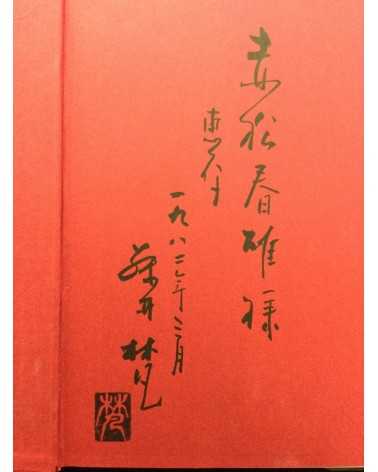 赤松春雄様
恵存
一九八二年三月
井 梵
梵